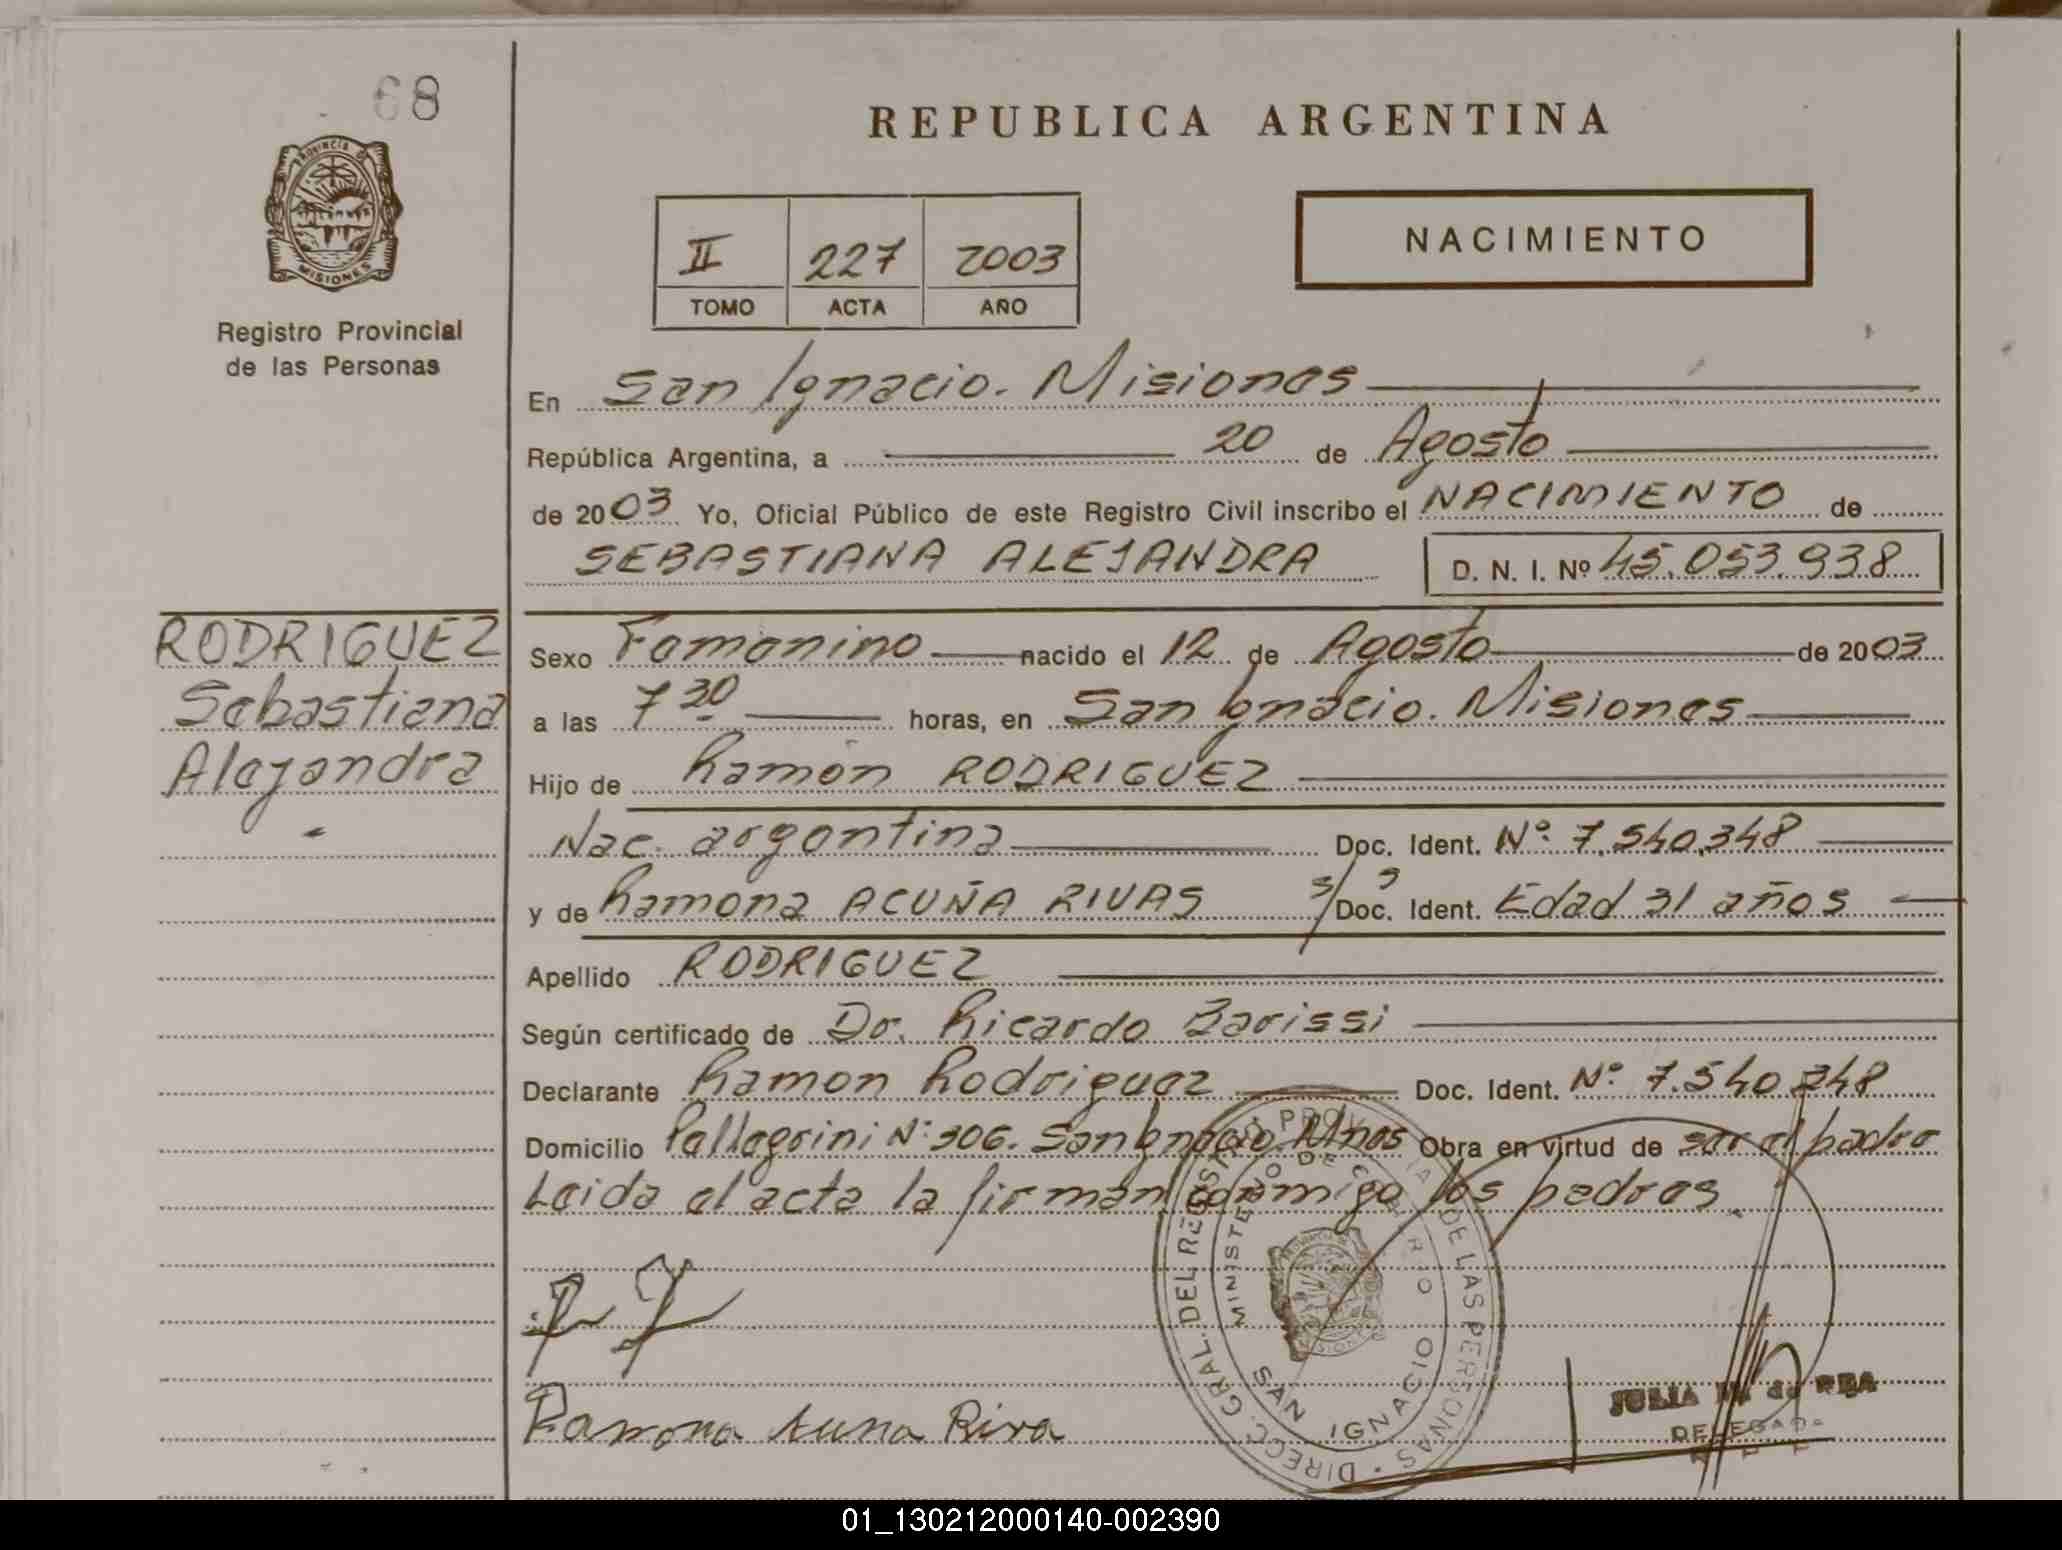 68
REPUBLICA ARGENTINA
PROVINCIA DE
MISIONES
Registro Provincial
de las Personas
II 227 2003
TOMO ACTA AÑO
NACIMIENTO
En San Ignacio. Misiones
República Argentina, a 20 de Agosto
de 2003 Yo, Oficial Público de este Registro Civil inscribo el NACIMIENTO de
SEBASTIANA ALEJANDRA D. N. I. Nº 45.053.938
RODRIGUEZ
Sebastiana
Alejandra
Sexo Femenino nacido el 12 de Agosto de 2003
a las 7 30 horas, en San Ignacio. Misiones
Hijo de Ramón RODRIGUEZ
Nac. argentina Doc. Ident. Nº 7.540.348
y de Ramona ACUÑA RIVAS s/ Doc. Ident. Edad 31 años
Apellido RODRIGUEZ
Según certificado de Dr. Ricardo Barissi
Declarante Ramon Rodriguez Doc. Ident. Nº 7.540.348
Domicilio Pellegrini Nº 306. San Ignacio. Mnes Obra en virtud de ser el padre
Leida el acta la firman conmigo los padres.
DIRECC. GRAL. DEL REGISTRO PROVINCIAL DE LAS PERSONAS
MINISTERIO DE GOBIERNO
SAN IGNACIO
Ramona Acuna Riva
JULIA de REA
DELEGADA
01_130212000140-002390